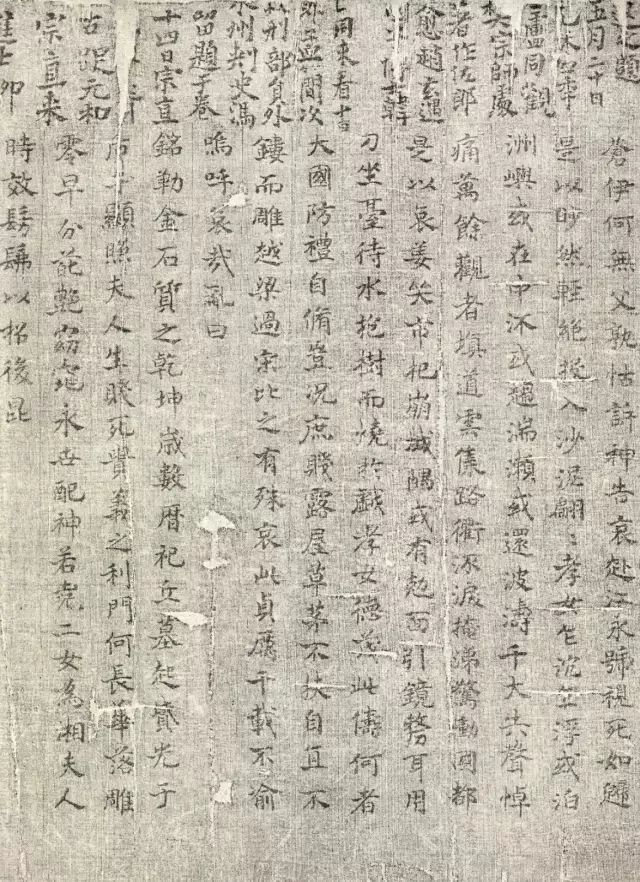 五月二十日
盧同觀
樊宗師處
著作佐郎
愈趙玄遇
同來看十一
刑部員外
永州刺史馮
留題于卷
十四日宗直
元和
宗直来
蒼伊何無父孰怙訴神告哀赴江永號視死如歸
是以眇然輕絕投入沙泥翩〻孝女乍沉乍浮或泊
洲嶼或在中流或趨湍瀨或還波濤千夫共聲悼
痛萬餘觀者填道雲集路衢流淚掩涕驚動國都
是以哀姜哭市杞崩城隅或有尅面引鏡剺耳用
刀坐臺待水抱樹而燒於戲孝女德茂此儔何者
大國防禮自脩豈況庶賤露屋草茅不扶自直不
鏤而雕越梁過宋比之有殊哀此貞厲千載不渝
嗚呼哀哉亂曰
銘勒金石質之乾坤歲數曆祀丘墓起墳光于
后土顯照夫人生賤死貴義之利門何長華落雕
零早分葩艷窈窕永世配神若堯二女為湘夫人
時效髣髴以招後昆